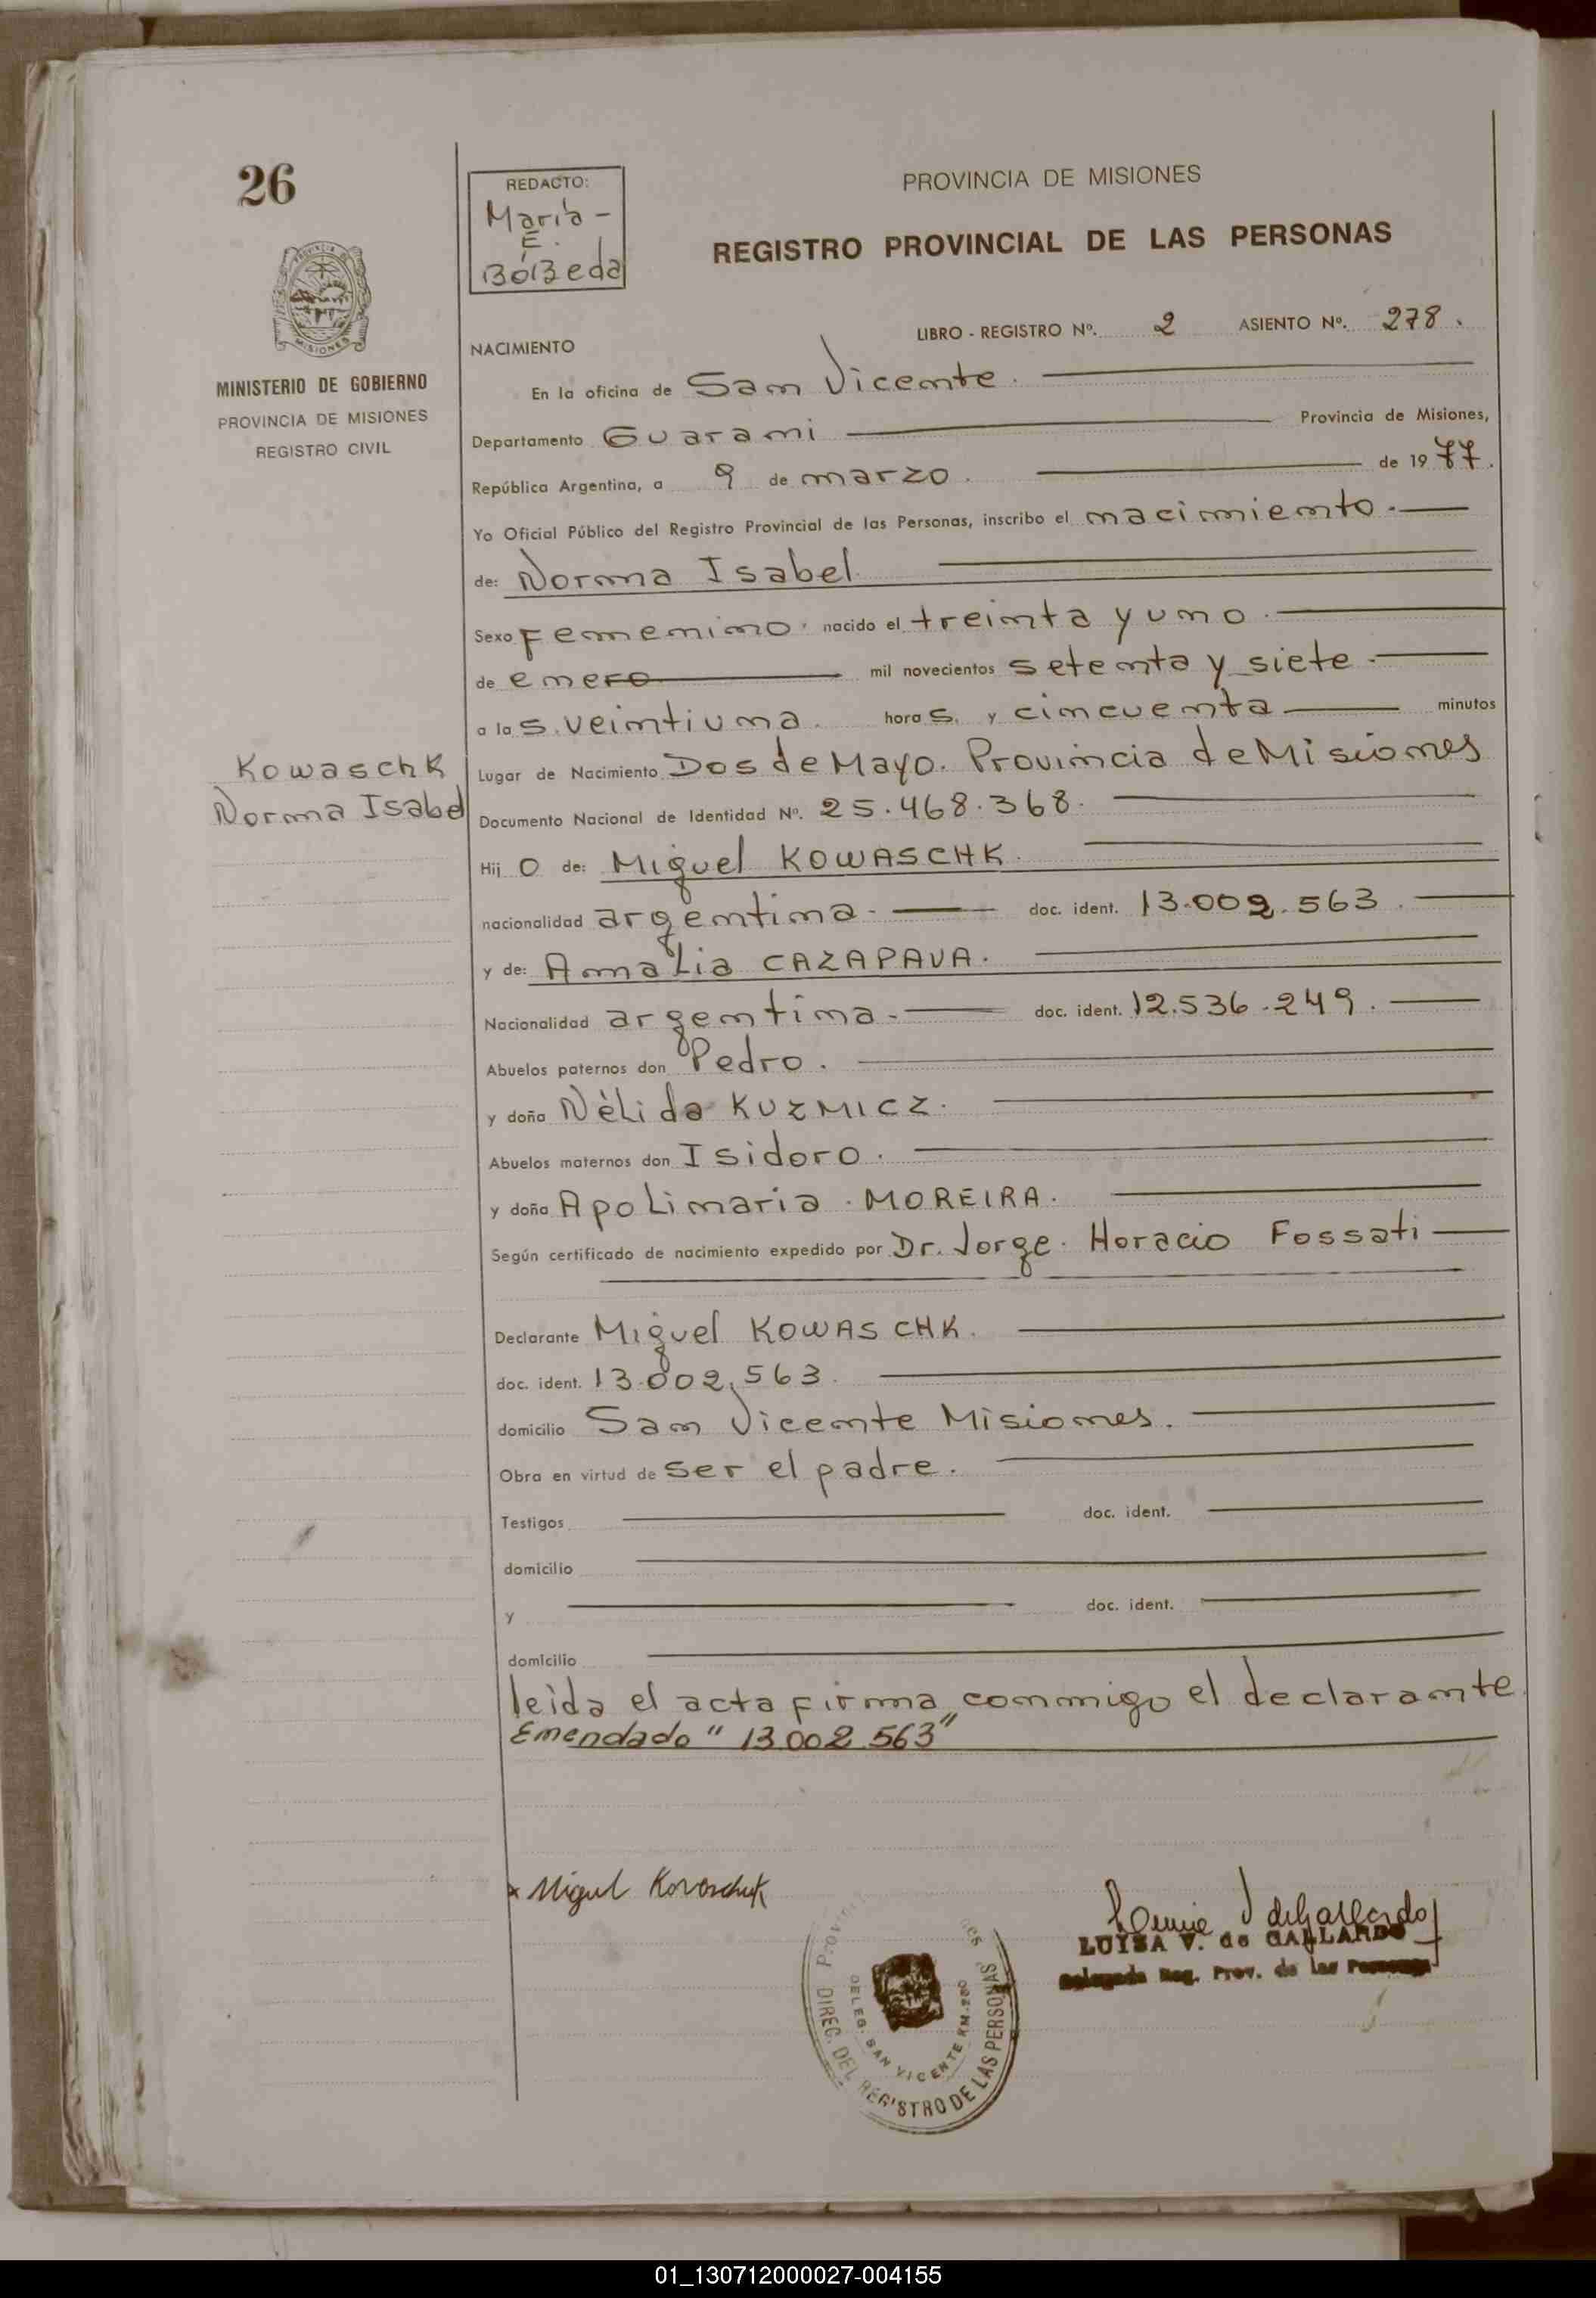 26
REDACTO:
Maria -
E.
BóBeda
PROVINCIA DE MISIONES
REGISTRO PROVINCIAL DE LAS PERSONAS
MISIONES
MINISTERIO DE GOBIERNO
PROVINCIA DE MISIONES
REGISTRO CIVIL
LIBRO - REGISTRO Nº. 2 ASIENTO Nº. 278.
NACIMIENTO
En la oficina de San Vicente.
Departamento Guarani Provincia de Misiones,
República Argentina, a 9 de marzo. de 1977.
Yo Oficial Público del Registro Provincial de las Personas, inscribo el nacimiento.
de: Norma Isabel
Sexo Femenino. nacido el treinta y uno.
de enero mil novecientos setenta y siete.
a las. veintiuna. horas. y cincuenta minutos
Kowaschk
Norma Isabel
Lugar de Nacimiento Dos de Mayo. Provincia de Misiones
Documento Nacional de Identidad Nº. 25.468.368.
Hij O de: Miguel KOWASCHK.
nacionalidad argentina. doc. ident. 13.002.563.
y de: Amalia CAZAPAVA.
Nacionalidad argentina. doc. ident. 12.536.249.
Abuelos paternos don Pedro.
y doña Nèlida KUZMICZ.
Abuelos maternos don Isidoro.
y doña Apolinaria. MOREIRA.
Según certificado de nacimiento expedido por Dr. Jorge. Horacio Fossati
Declarante Miguel KOWASCHK.
doc. ident. 13.002.563.
domicilio San Vicente Misiones.
Obra en virtud de ser el padre.
Testigos doc. ident.
domicilio
y doc. ident.
domicilio
leida el acta firma conmigo el declarante.
Emendado "13.002.563"
x Miguel Kowaschuk
LUISA V. de GALLARDO
Delegada Reg. Prov. de las Personas
DIREC. DEL REGISTRO DE LAS PERSONAS
DELEG. SAN VICENTE KM.280
01_130712000027-004155